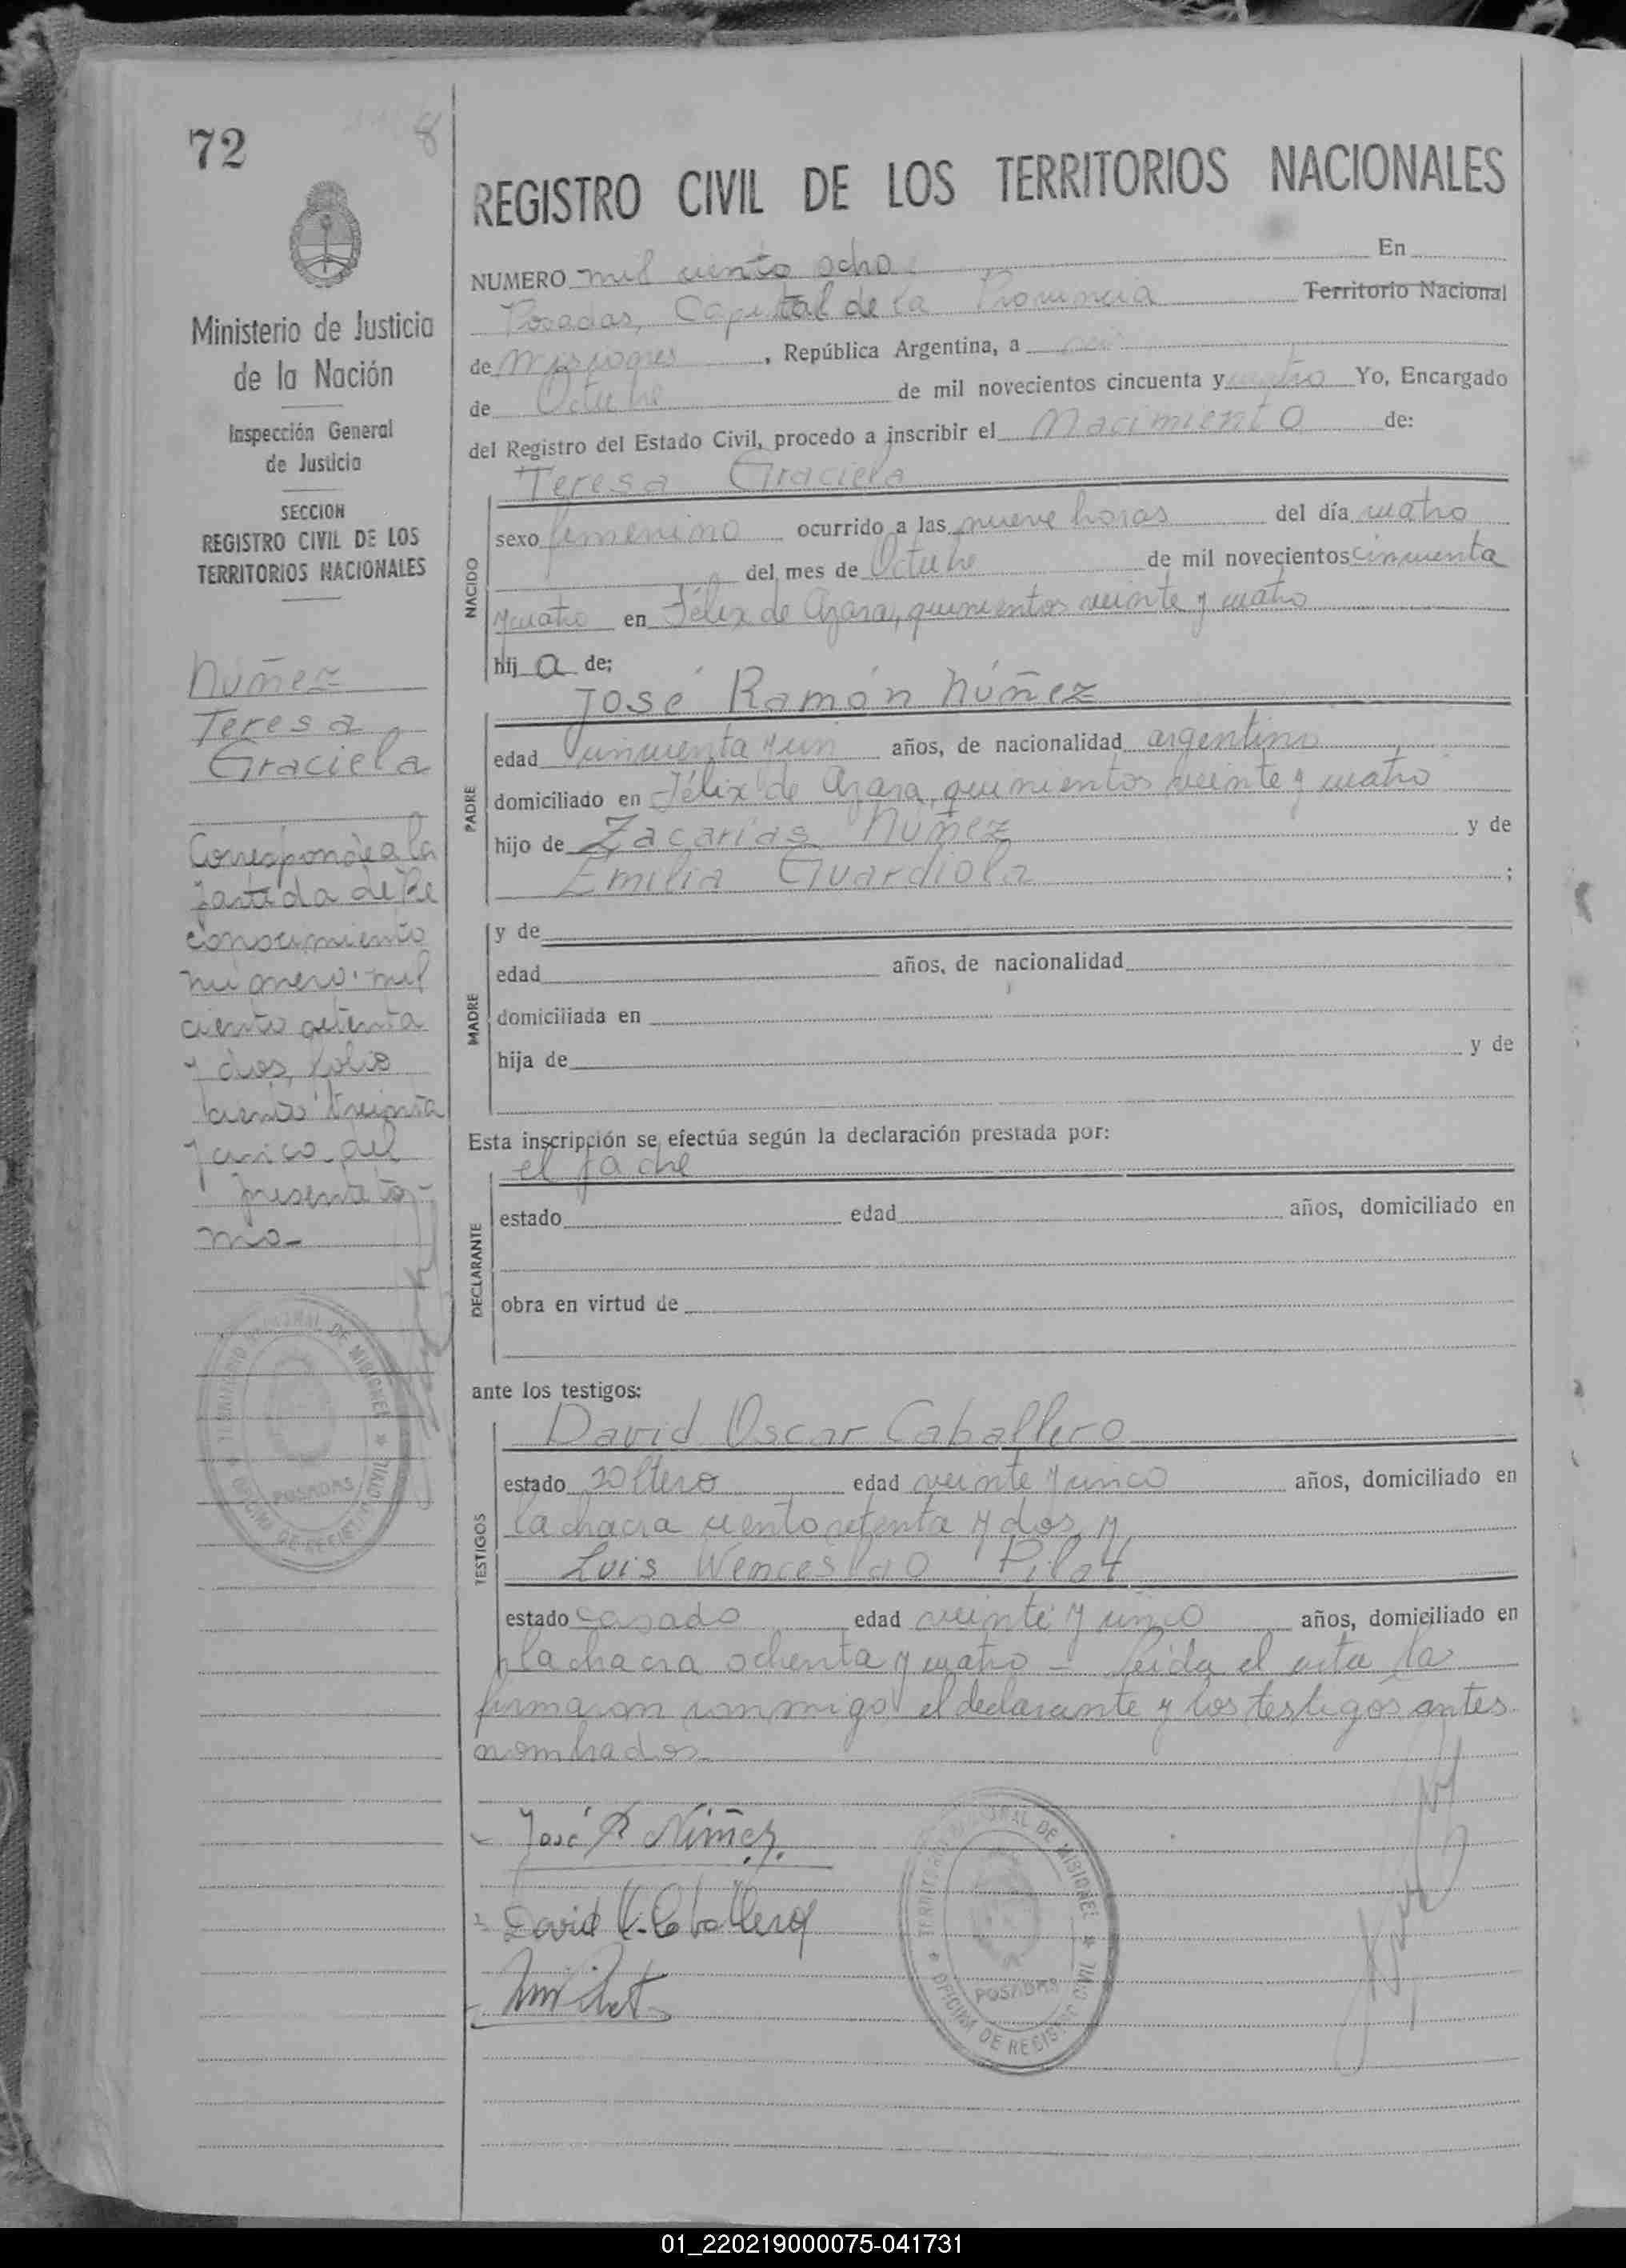 72
8
Ministerio de Justicia
de la Nación
Inspección General
de Justicia
SECCION
REGISTRO CIVIL DE LOS
TERRITORIOS NACIONALES
Nuñez
Teresa
Graciela
Corresponde a la
partida de Re
conocimiento
numero mil
ciento setenta
y dos, folio
ciento treinta
y cinco del
presente to-
mo-
REGISTRO CIVIL DE LOS TERRITORIOS NACIONALES
NUMERO mil ciento ocho En
Posadas, Capital de la Provincia Territorio Nacional
de Misiones, República Argentina, a
de Octubre de mil novecientos cincuenta y cuatro Yo, Encargado
del Registro del Estado Civil, procedo a inscribir el Nacimiento de:
Teresa Graciela
NACIDO
sexo femenino ocurrido a las nueve horas del día cuatro
del mes de Octubre de mil novecientos cincuenta
y cuatro en Félix de Azara, quinientos veinte y cuatro
hij a de;
José Ramón Núñez
PADRE
edad cincuenta y un años, de nacionalidad argentino
domiciliado en Félix de Azara, quinientos veinte y cuatro
hijo de Zacarías Núñez y de
Emilia Guardiola ;
MADRE
y de
edad años, de nacionalidad
domiciliada en
hija de y de
Esta inscripción se efectúa según la declaración prestada por:
el padre
DECLARANTE
estado edad años, domiciliado en
obra en virtud de
ante los testigos:
David Oscar Caballero
TESTIGOS
estado soltero edad veinte y cinco años, domiciliado en
la chacra ciento setenta y dos y
Luis Wenceslao Pilat
estado casado edad veinte y cinco años, domiciliado en
la chacra ochenta y cuatro - Leída el acta la
firmaron conmigo el declarante y los testigos antes
nombrados
José R Núñez
David O. Caballero
POSADAS
OFICINA DE REGISTRO CIVIL
01_220219000075-041731